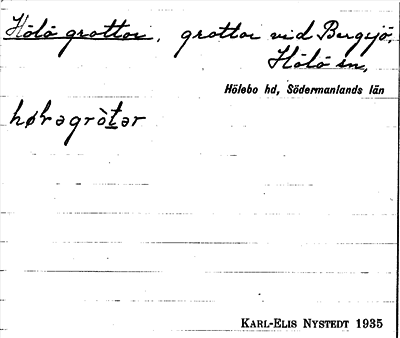 Hölö grottor, grottor vid Bergsjö,
Hölö sn,
Hölebo hd, Södermanlands län
høl⸱əgròtər
KARL-ELIS NYSTEDT 1935